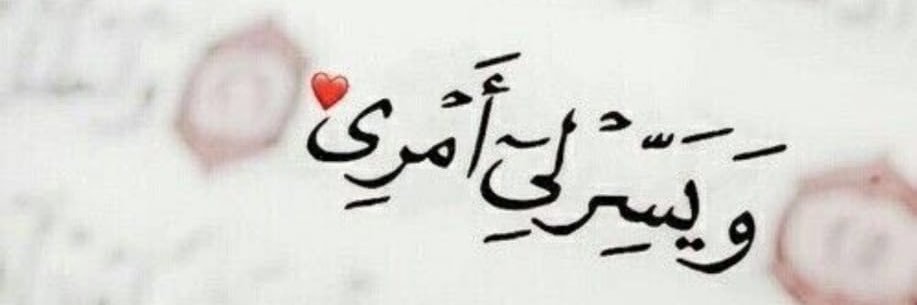 وَيَسِّرْ لِيٓ أَمْرِي ❤️